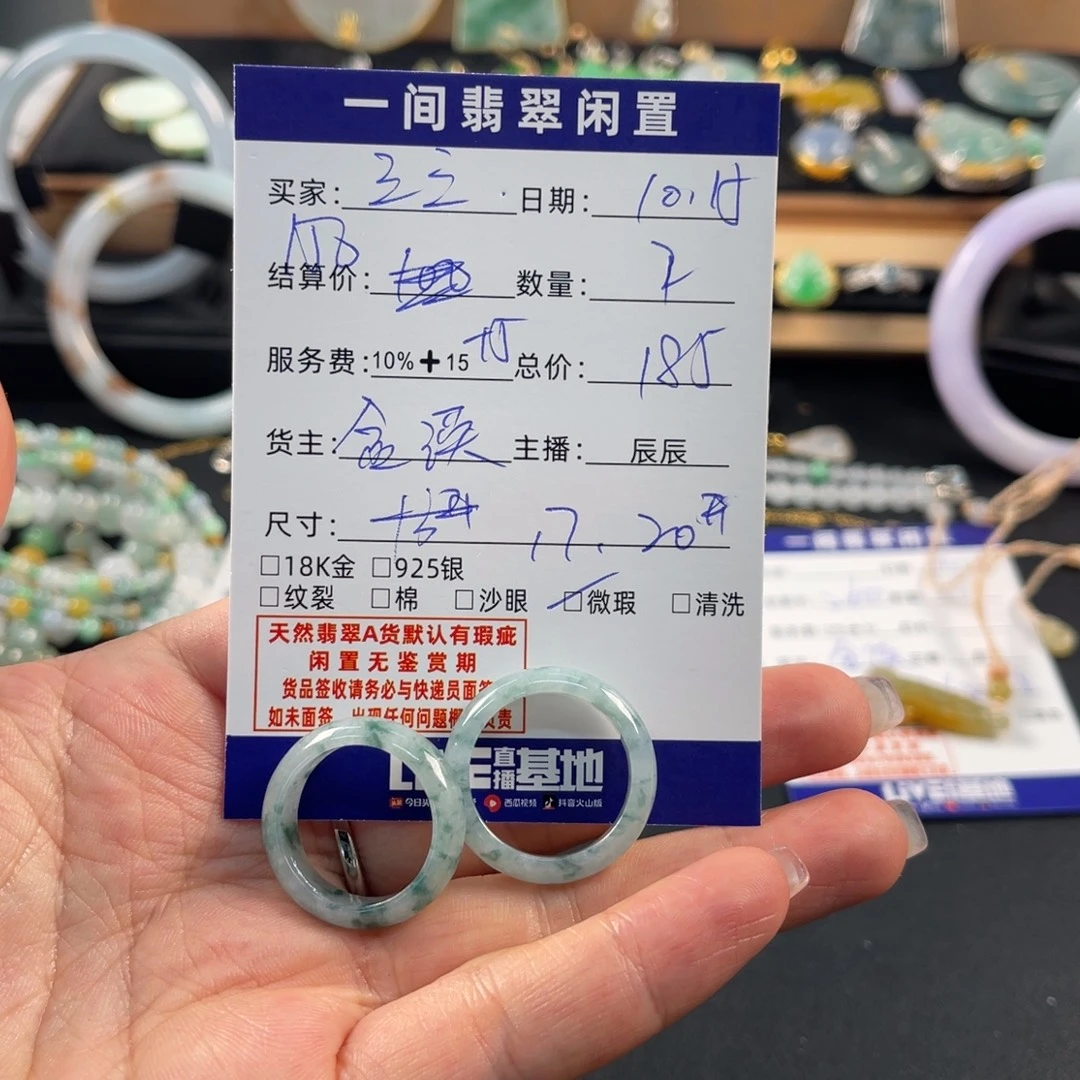 一间翡翠闲置
买家： 日期：10.15
结算价： 数量：2
服务费：10%+15 总价：185
货主： 主播：辰辰
尺寸： 17. 20
□18K金 □925银
□纹裂 □棉 □沙眼 □微瑕 □清洗
天然翡翠A货默认有瑕疵
闲置无鉴赏期
货品签收请务必与快递员面签
如未面签 出现任何问题概 负责
直播基地
西瓜视频 抖音火山版